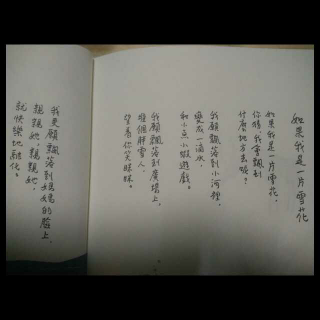 如果我是一片雪花
如果我是一片雪花,
你猜我會飄到
什麼地方去呢?
我願飄落到小河裡,
變成一滴水,
和小魚小蝦遊戲。
我願飄落到廣場上,
堆個胖雪人,
望著你笑眯眯。
我更願飄落到媽媽的臉上,
親親她,親親她,
就快樂地融化。